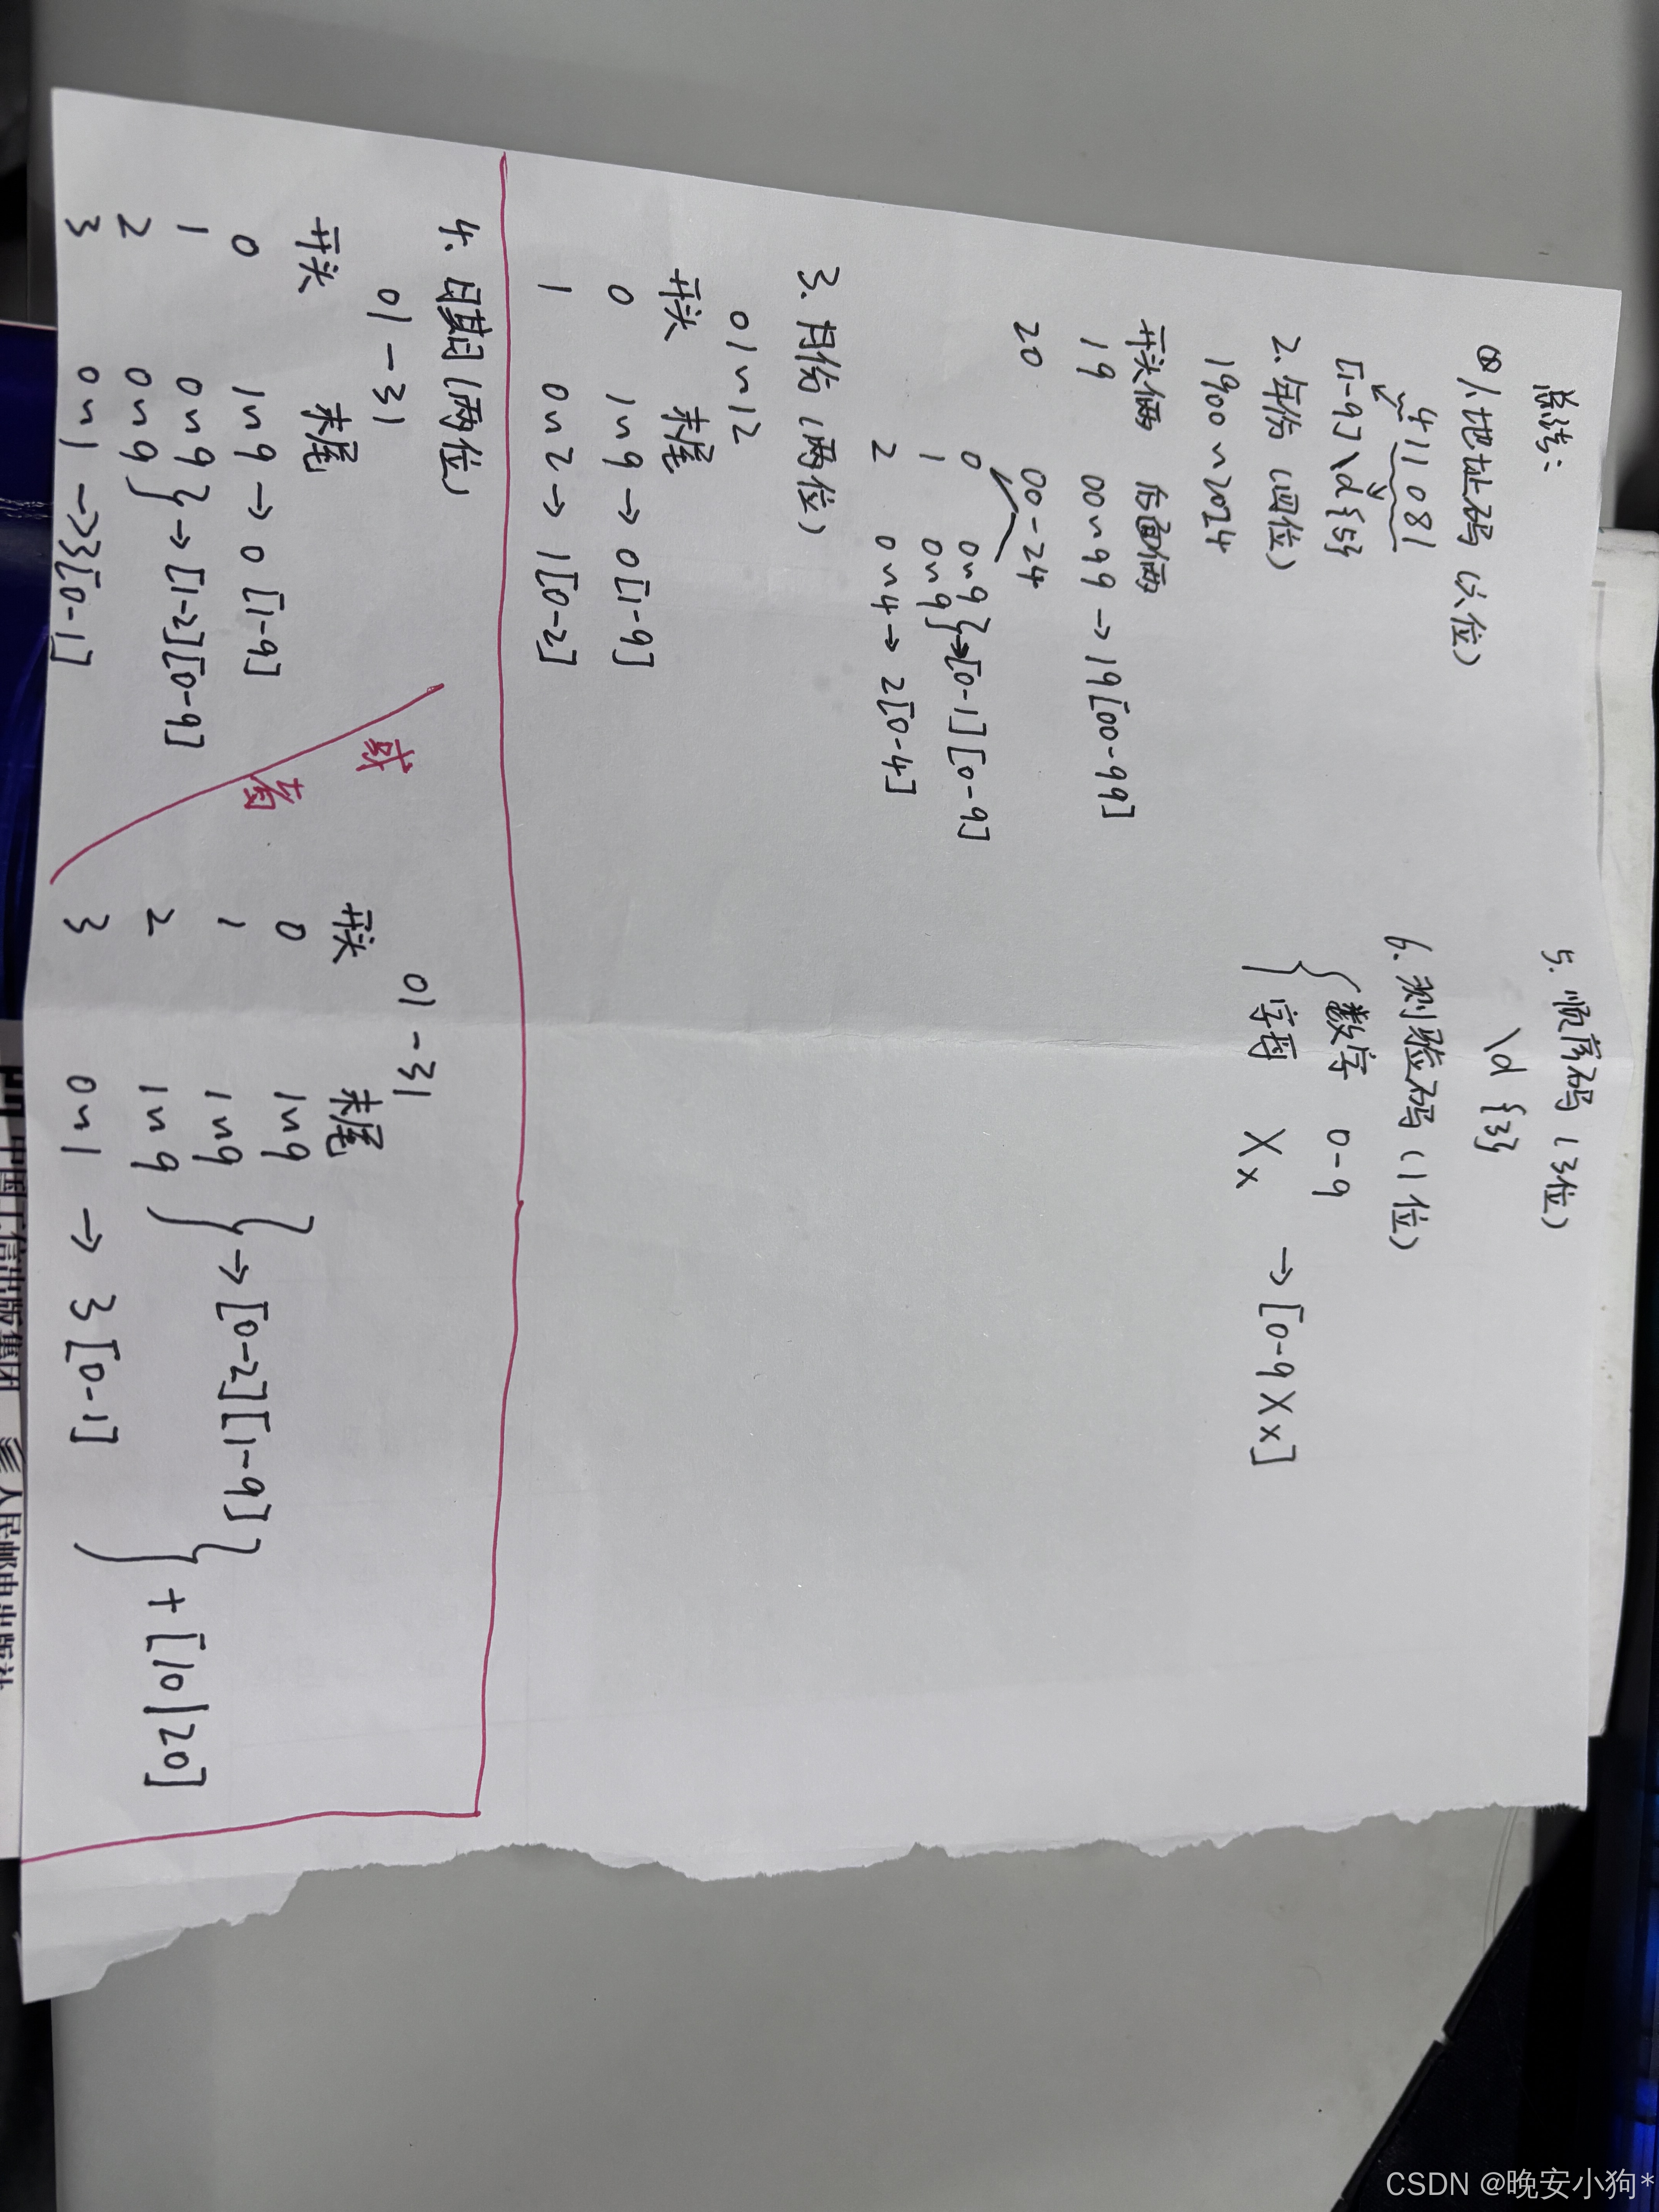 总结：
①1.地址码（六位）
411081
[1-9]\d{5}
2.年份（四位）
1900~2024
开头俩 后面俩
19 00~99 → 19[00-99]
20 00-24
0 0~9
1 0~9 } → [0-1][0-9]
2 0~4 → 2[0-4]
3.月份（两位）
01~12
开头 末尾
0 1~9 → 0[1-9]
1 0~2 → 1[0-2]
4.日期（两位）
01-31
开头 末尾
0 1~9 → 0[1-9]
1 0~9
2 0~9 } → [1-2][0-9]
3 0~1 → 3[0-1]
或者
01-31
开头 末尾
0 1~9
1 1~9
2 1~9 } → [0-2][1-9]
3 0~1 → 3[0-1]
} + [10|20]
5.顺序码（3位）
\d{3}
6.测验码（1位）
{ 数字 0-9
字母 X x → [0-9Xx]
中国工信出版集团 人民邮电出版社
CSDN @晚安小狗*